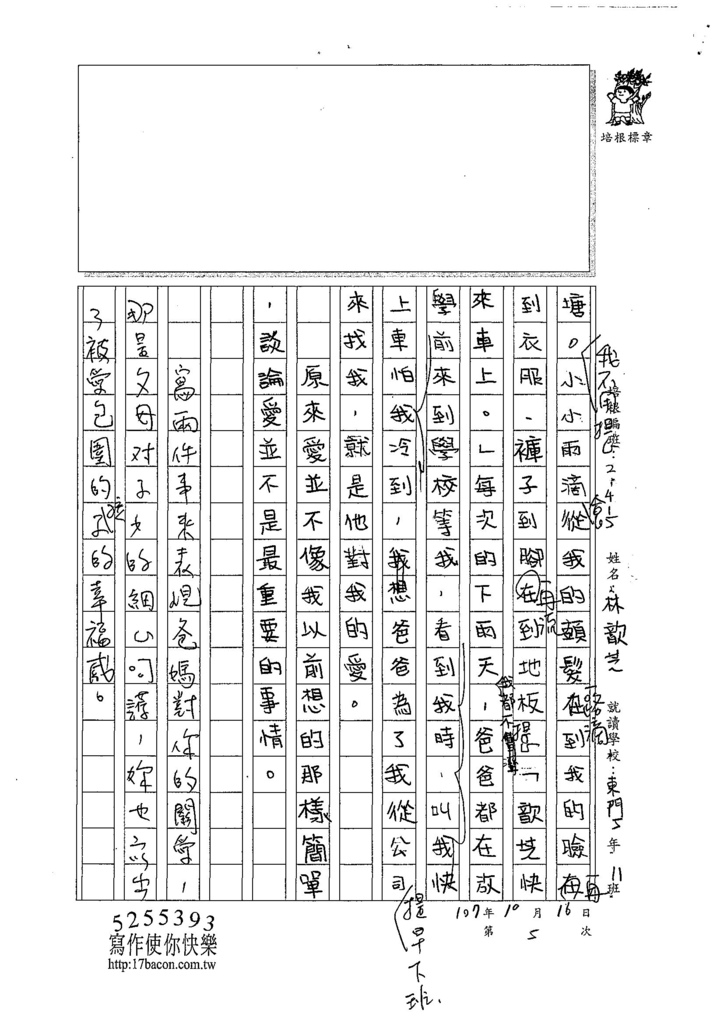 培根標章
培根編班：2.415 姓名：林歆芸 就讀學校：東門5年11班
107年10月16日 第5次
塘。小小雨滴從我的頭髮在到我的臉在
到衣服、褲子到腳在到地板「歆芸快
來車上。」每次的下雨天，爸爸都在放
學前來到學校等我，看到我時，叫我快
上車怕我冷到，我想爸爸為了我從公司
來找我，就是他對我的愛。
原來愛並不像我以前想的那樣簡單
，談論愛並不是最重要的事情。
寫兩件事來表現爸媽對你的關愛，
那是父母对子女的細心呵護，妳也寫出
了被愛包圍的孩子的幸福感。
我都不會溼
提早下班
5255393
寫作使你快樂
http:17bacon.com.tw